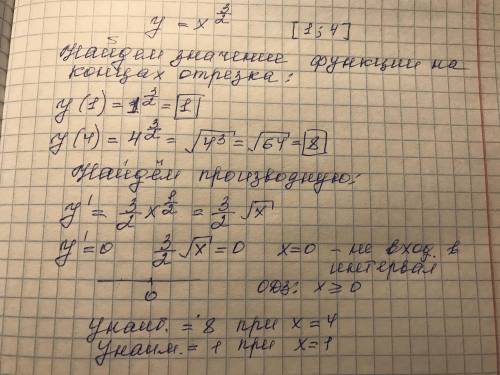 y = x^(3/2) [1; 4]
Найдём значение функции на
концах отрезка:
y(1) = 1^(3/2) = 1
y(4) = 4^(3/2) = √4³ = √64 = 8
Найдём производную:
y' = 3/2 x^(1/2) = 3/2 √x
y' = 0 3/2 √x = 0 x = 0 – не вход. в
интервал
0 ОДЗ: x ≥ 0
yнаиб. = 8 при x = 4
yнаим. = 1 при x = 1